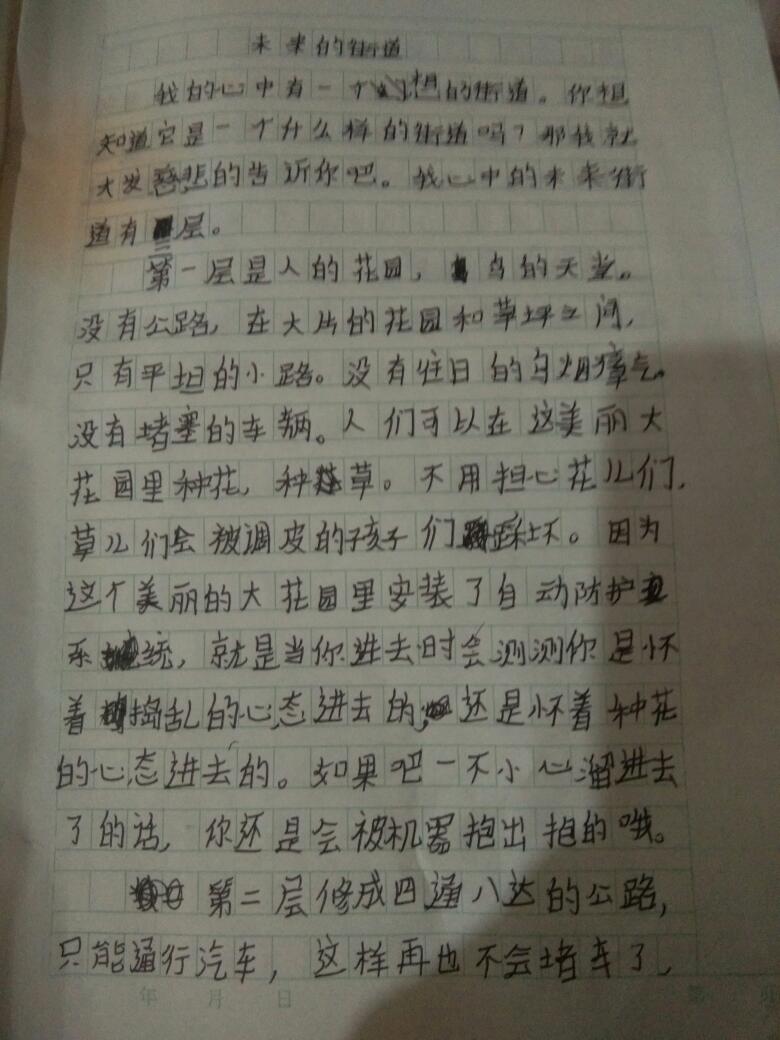 未来的街道
我的心中有一个幻想的街道。你想
知道它是一个什么样的街道吗？那我就
大发慈悲的告诉你吧。我心中的未来街
道有三层。
第一层是人的花园，鸟的天堂。
没有公路，在大片的花园和草坪之间，
只有平坦的小路。没有往日的乌烟瘴气。
没有堵塞的车辆。人们可以在这美丽大
花园里种花，种草。不用担心花儿们，
草儿们会被调皮的孩子们踩坏。因为
这个美丽的大花园里安装了自动防护
系统，就是当你进去时会测测你是怀
着捣乱的心态进去的，还是怀着种花
的心态进去的。如果吧一不小心溜进去
了的话，你还是会被机器抱出抱的哦。
第二层修成四通八达的公路，
只能通行汽车，这样再也不会堵车了，
年 月 日 第